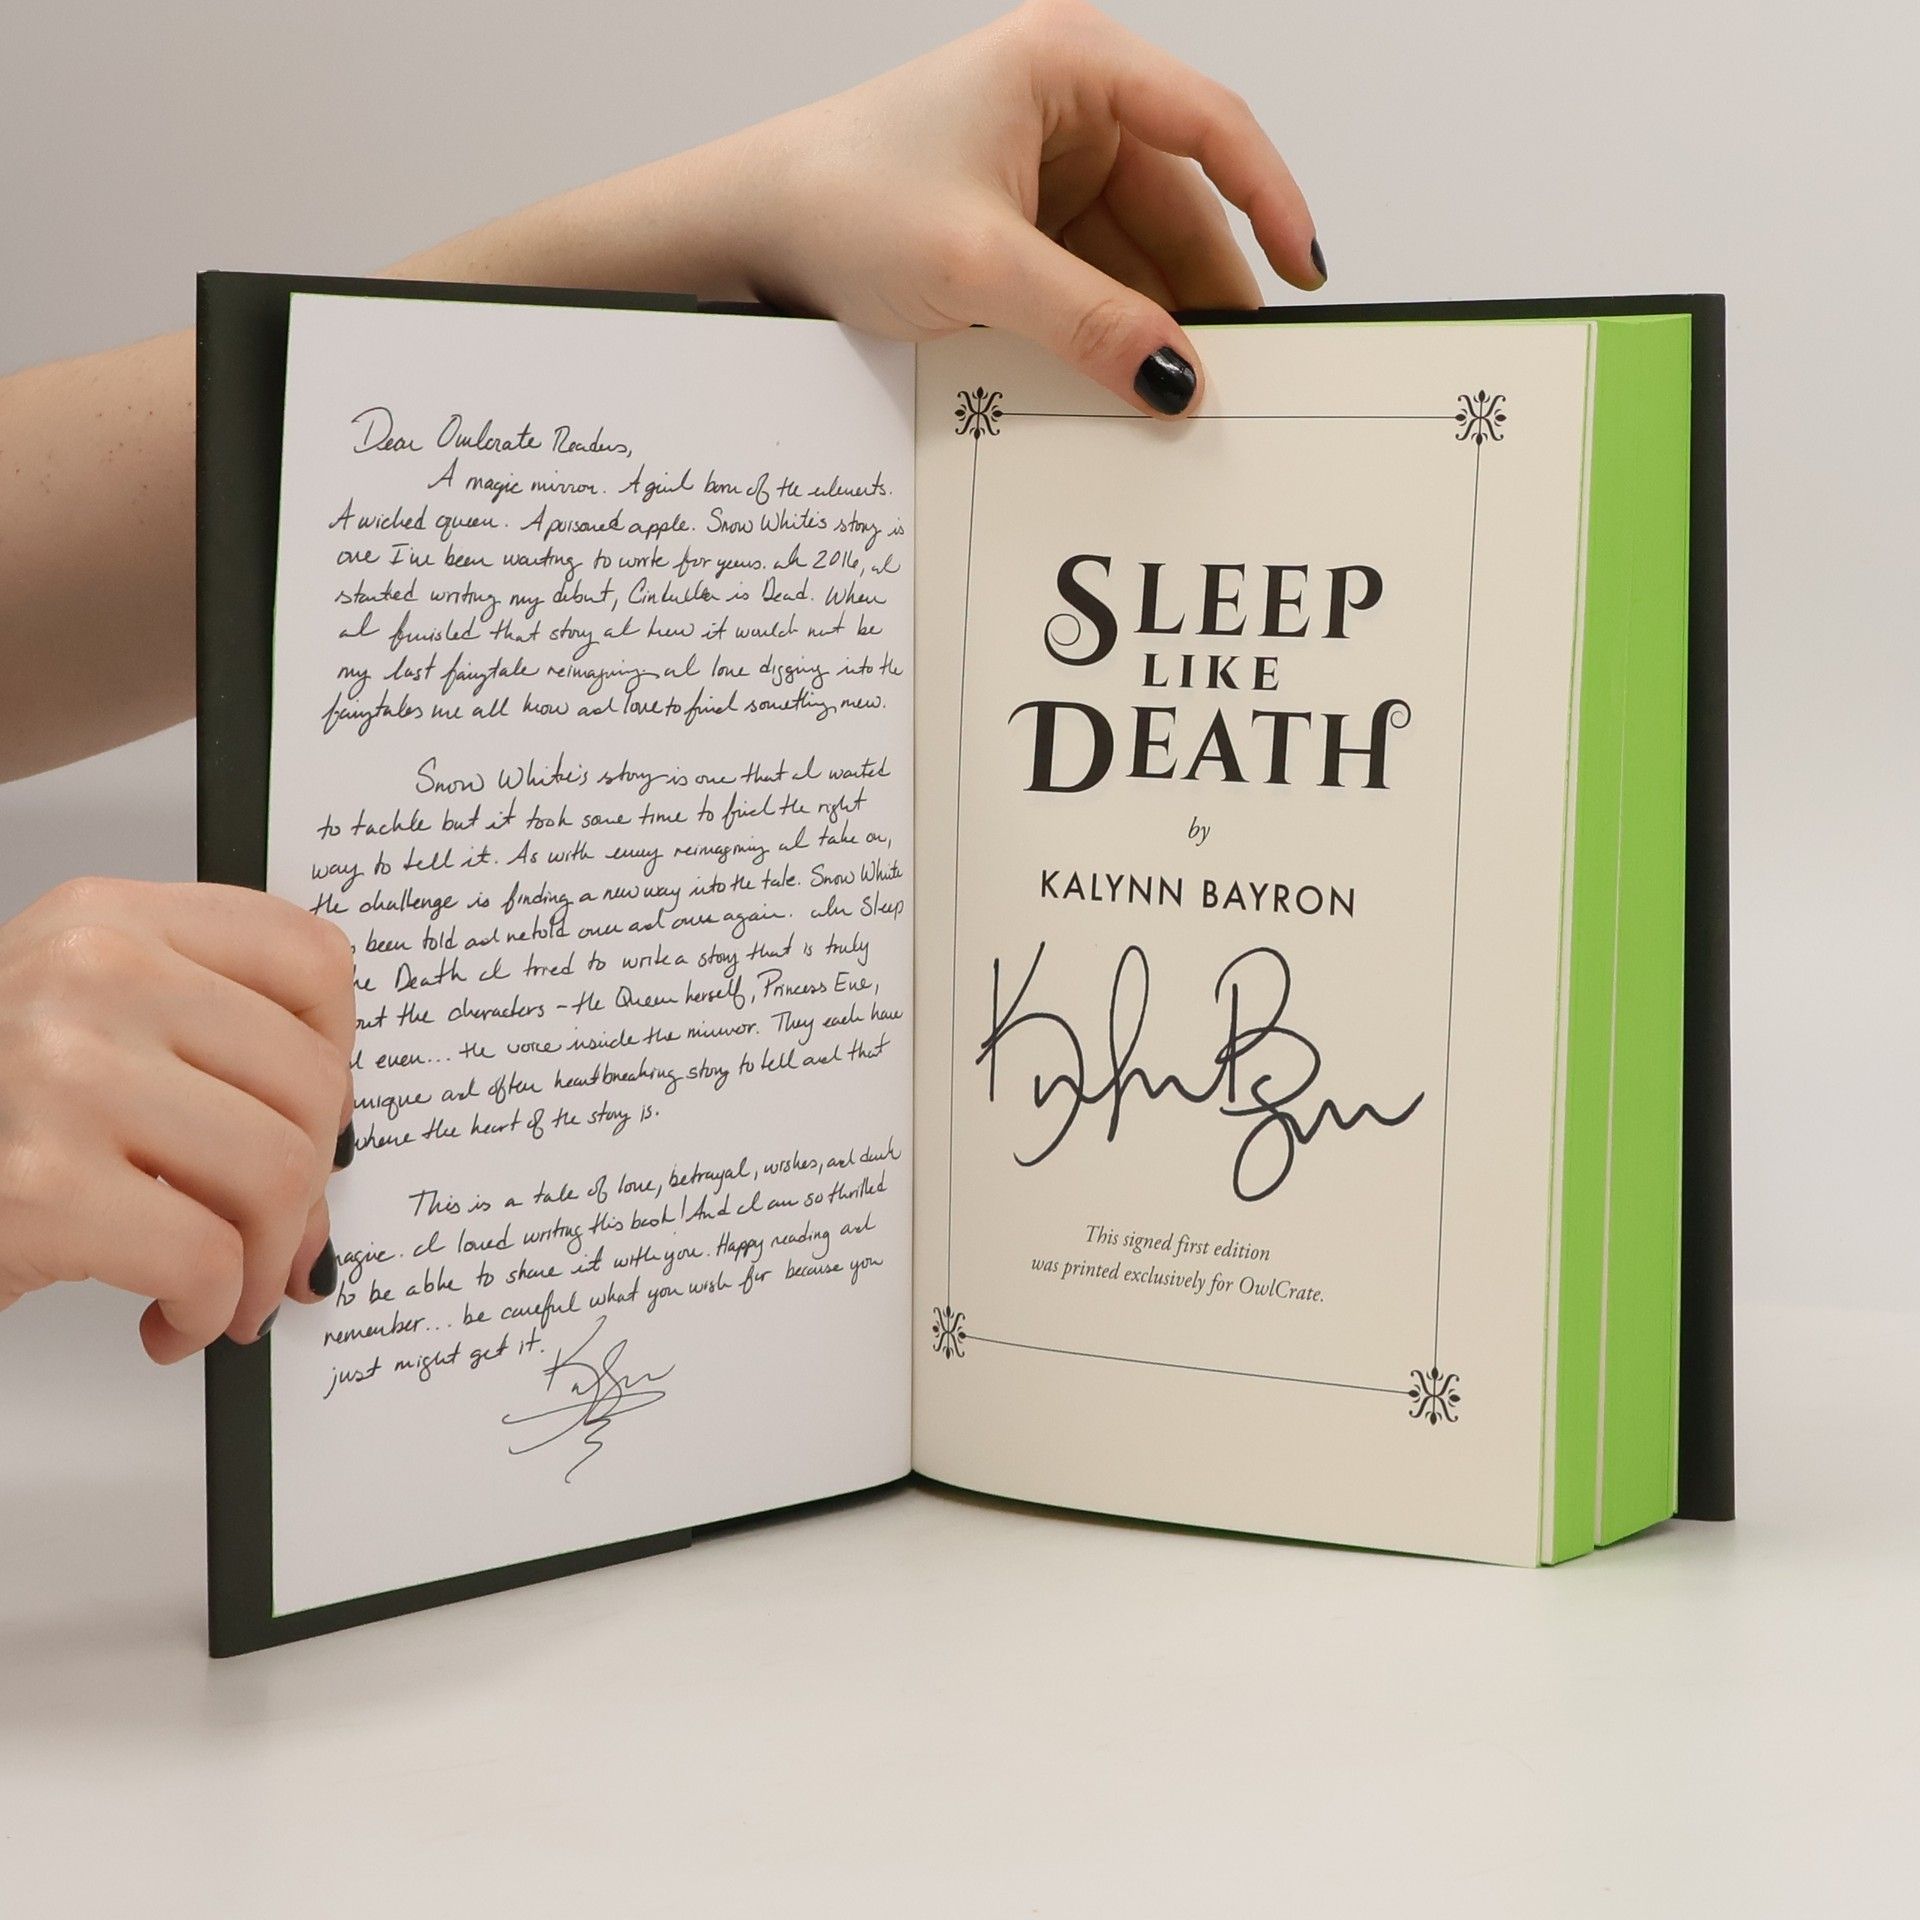 Dear Owlcrate Readers,
A magic mirror. A girl born of the elements.
A wicked queen. A poisoned apple. Snow White's story is
one I've been wanting to write for years. In 2016, I
started writing my debut, Cinderella is Dead. When
I finished that story I knew it would not be
my last fairytale reimagining. I love digging into the
fairytales we all know and love to find something new.
Snow White's story is one that I wanted
to tackle but it took some time to find the right
way to tell it. As with every reimagining I take on,
the challenge is finding a new way into the tale. Snow White
been told and retold over and over again. In Sleep
Death I tried to write a story that is truly
the characters – the Queen herself, Princess Eve,
even... the voice inside the mirror. They each have
unique and often heartbreaking story to tell and that
where the heart of the story is.
This is a tale of love, betrayal, wishes, and dark
magic. I loved writing this book! And I am so thrilled
to be able to share it with you. Happy reading and
remember... be careful what you wish for because you
just might get it.
SLEEP
LIKE
DEATH
by
KALYNN BAYRON
This signed first edition
was printed exclusively for OwlCrate.